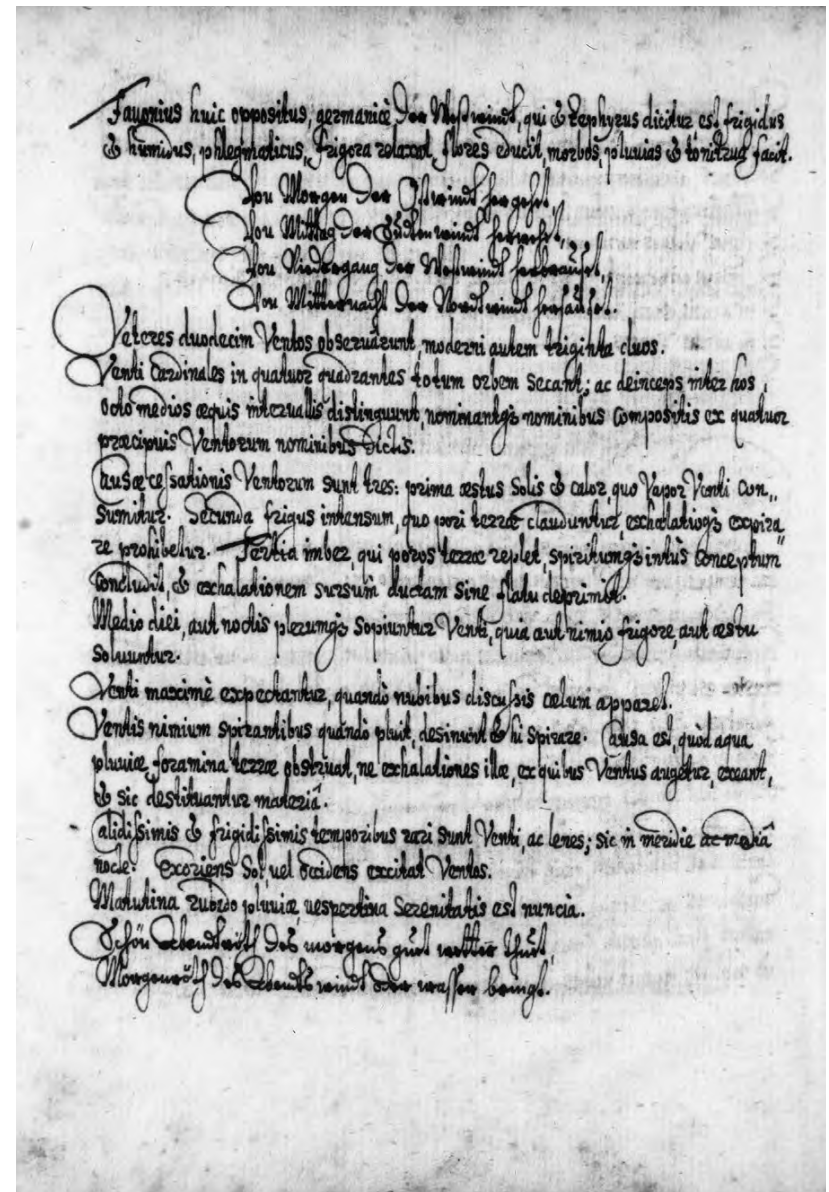 Fauonius huic oppositus, germanicè Der Westwindt, qui & Zephyrus dicitur est frigidus
& humidus, phlegmaticus, frigora relaxat, flores educit, morbos, pluuias & tonitrua facit.
Von Morgen der Ostwindt her gehet,
Von Mittag der Südenwindt herwehet,
Von Niedergang der Westwindt herbrauset,
Von Mitternacht der Nordtwindt hersauset.
Veteres duodecim Ventos obseruarunt, moderni autem triginta duos.
Venti Cardinales in quatuor quadrantes totum orbem Secant; ac deinceps inter hos,
Octo medios æquis interuallis distinguunt, nominantq3 nominibus Compositis ex quatuor
præcipuis Ventorum nominibus dictis.
Causæ cessationis Ventorum sunt tres: prima æstus Solis & calor, quo Vapor Venti Con„
sumitur. Secunda frigus intensum, quo pori terræ clauduntur, exhalatioq3 expira
re prohibetur. Tertia imber, qui poros terræ replet, spiritumq3 intùs Conceptum
Concludit, & exhalationem sursum ductam sine flatu deprimit.
Medio diei, aut noctis plerumq3 Sopiuntur Venti, quia aut nimio frigore, aut æstu
Soluuntur.
Venti maximè expectantur, quandò nubibus discussis cælum apparet.
Ventis nimium spirantibus quandò pluit, desinunt & hi spirare. Causa est, quòd aqua
pluuiæ foramina terræ obstruat, ne exhalationes illæ, ex quibus Ventus augetur, exeant,
& sic destituantur materiâ.
Calidissimis & frigidissimis temporibus rari sunt Venti, ac lenes; sic in meridie ac mediâ
nocte. Exoriens Sol, uel Occidens excitat Ventos.
Matutina rubedo pluuiæ, uespertina Serenitatis est nuncia.
Schön Abendtröth des morgens gutt wetter thut,
Morgenröth des Abendts windt oder wasser bringt.